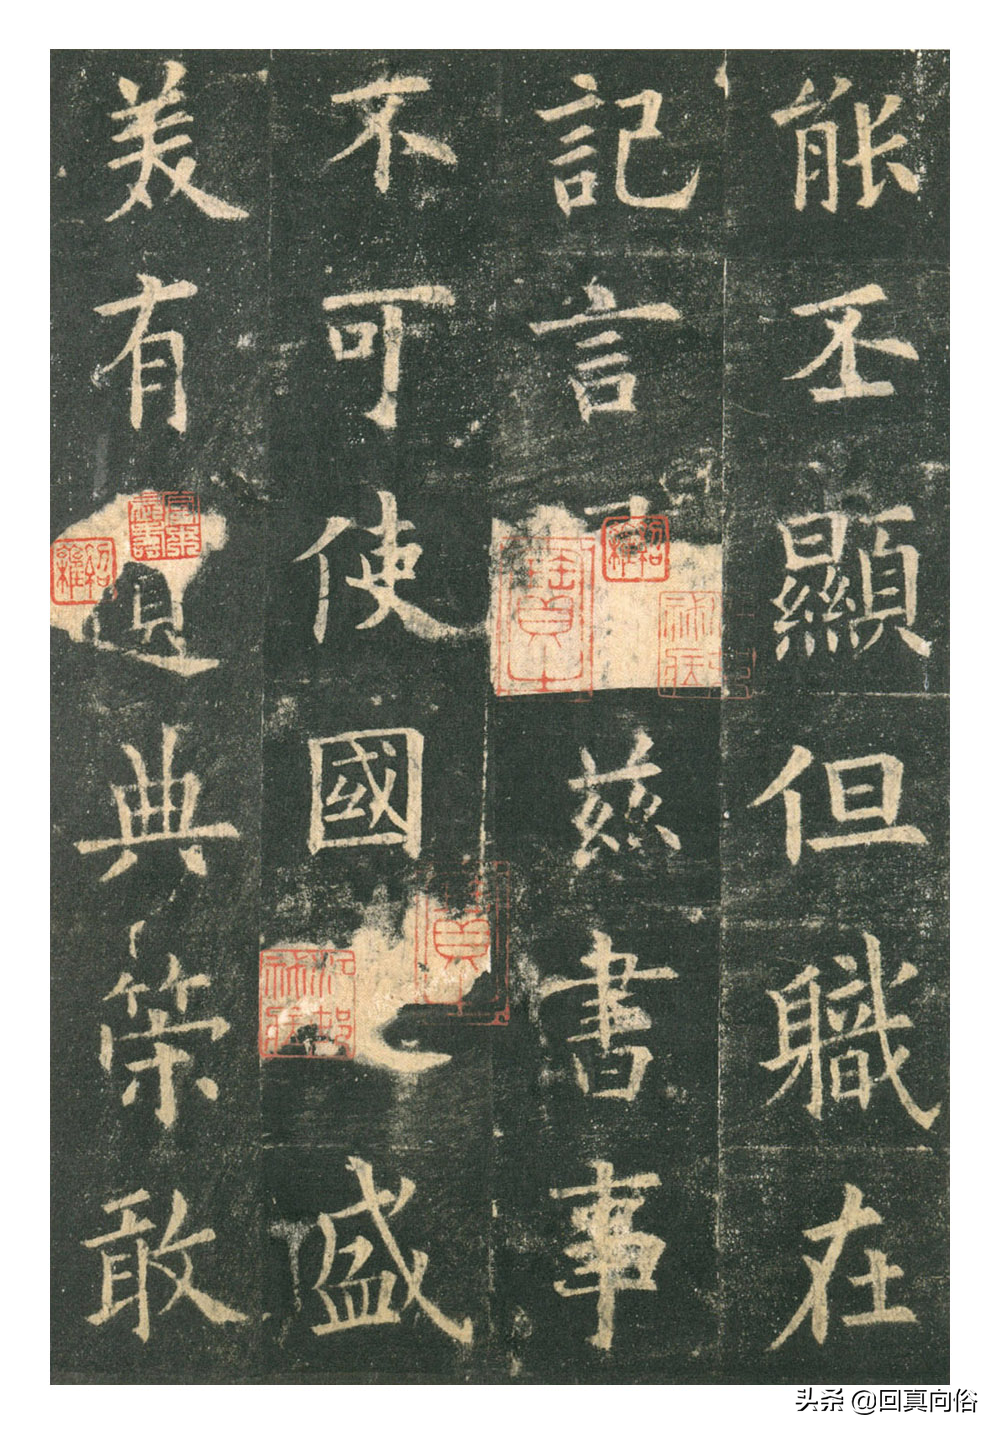 能丕顯但職在
記言兹書事
不可使國之盛
美有遺典策敢
頭条 @回真向俗